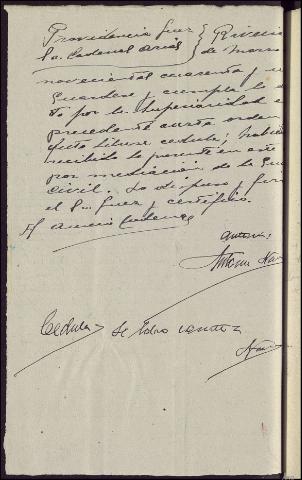 Providencia Juez
Sr. Cadenas Arias
} Riveri
de Marzo
novecientos cuarenta y u
Guardese y cumpla lo
to por la Superioridad e
precedente carta orden
librese cedula;
recibido la presente en este
por mediación de la Gua
civil. Lo dispuso y firm
el Sr. Juez y certifico.
Cadenas
Ante mi
Antonio Nav
Cedula> Se libro